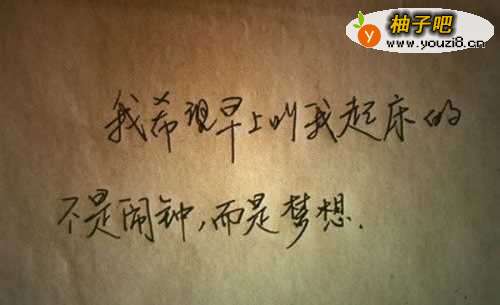 柚子吧
www.youzi8.cn
我希望早上叫我起床的
不是闹钟,而是梦想.